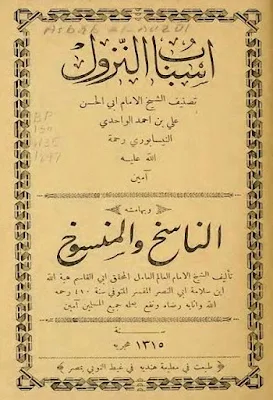 Asbab al-nuzul
اسباب النزول
تصنيف الشيخ الامام ابي الحسن
علي بن احمد الواحدي
النيسابوري رحمة
الله عليه
آمين
BP
130
1897
وبهامشه
الناسخ والمنسوخ
تأليف الشيخ الامام العالم العامل المحقق ابي القاسم هبة الله
ابن سلامة ابي النصر المفسر المتوفى سنة ٤١٠ رحمه
الله واثابه رضاه ونفع بعلمه جميع المسلمين آمين
سنة
١٣١٥ هجرية
طبعت في مطبعة هندية في غيط النوبي بمصر